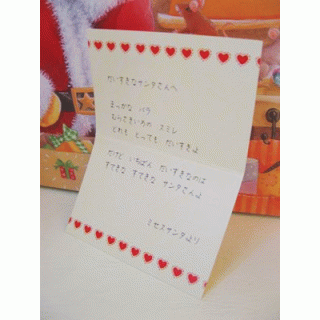 だいすきなサンタさんへ
まっかな バラ
むらさきいろの スミレ
どれも とっても だいすきよ
だけど いちばん だいすきなのは
すてきな すてきな サンタさんよ
ミセスサンタより